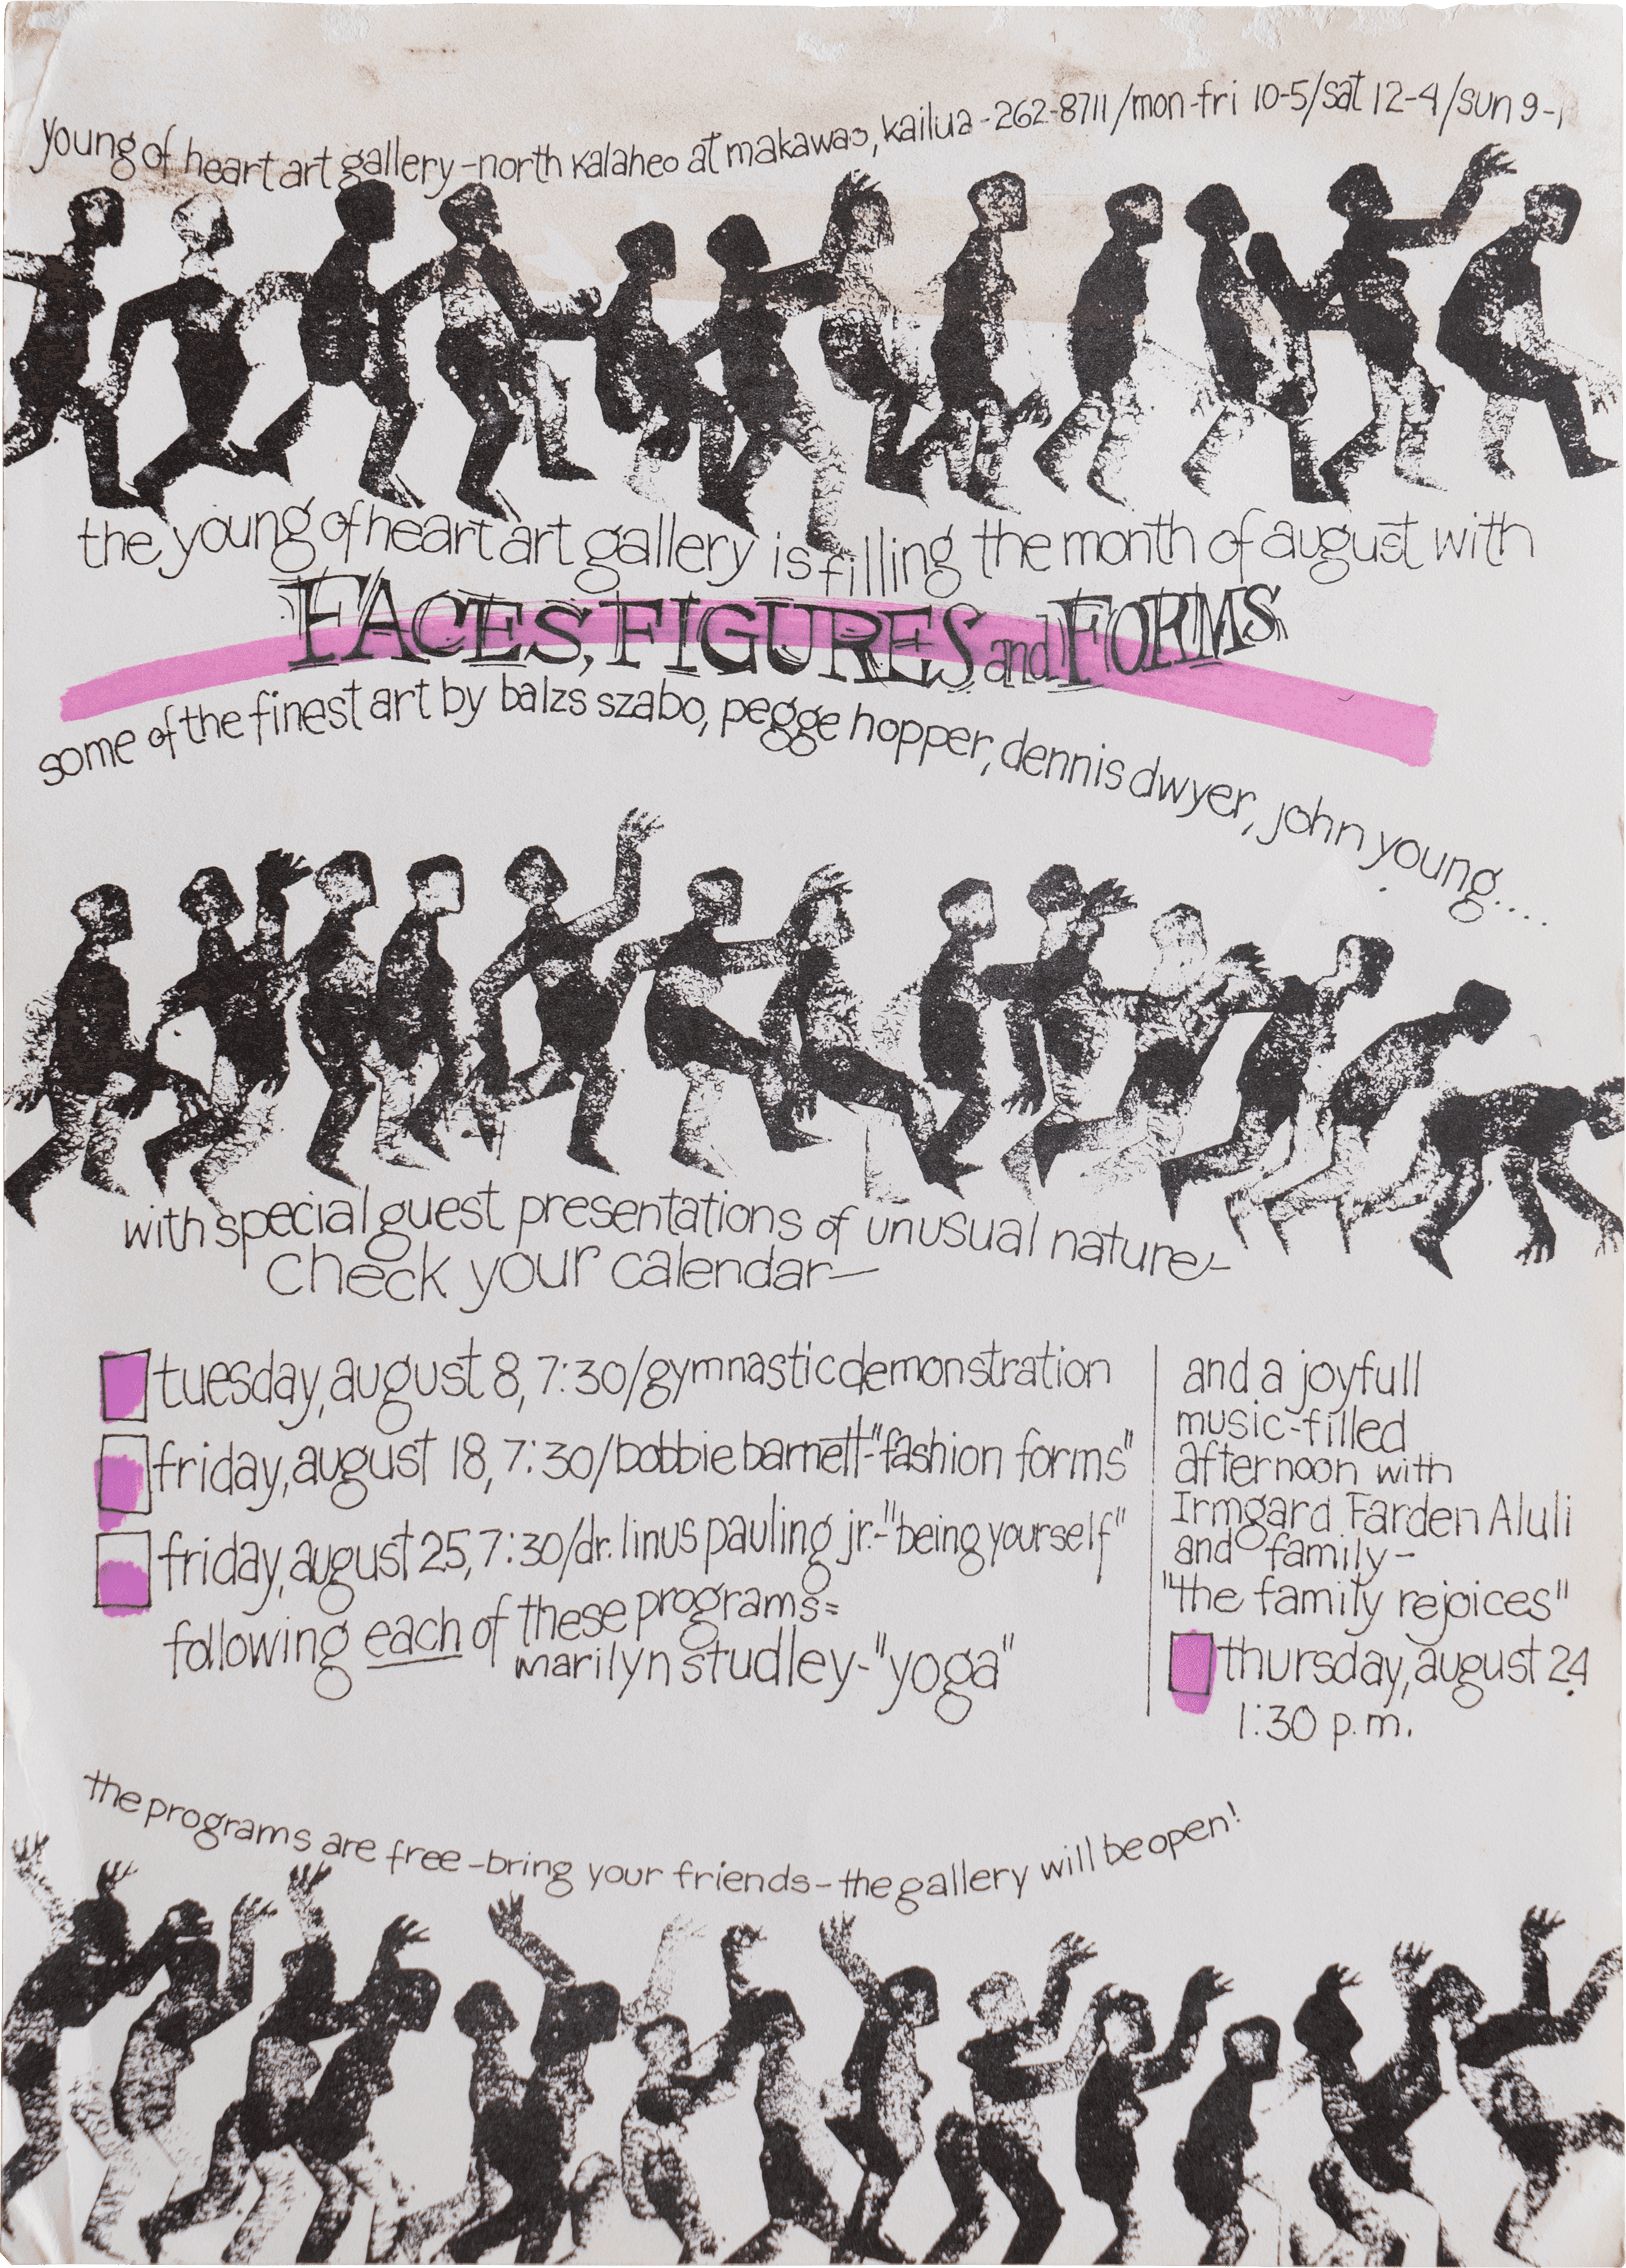 young of heart art gallery-north kalaheo at makawao, kailua-262-8711/mon-fri 10-5/sat 12-4/sun 9-1
the young of heart art gallery is filling the month of august with
FACES, FIGURES and FORMS
some of the finest art by balzs szabo, pegge hopper, dennis dwyer, john young....
with special guest presentations of unusual nature-
check your calendar—
tuesday, august 8, 7:30/gymnastic demonstration
friday, august 18, 7:30/bobbie barnett-"fashion forms"
friday, august 25, 7:30/dr. linus pauling jr.-"being yourself"
following each of these programs=
marilyn studley-"yoga"
and a joyfull
music-filled
afternoon with
Irmgard Farden Aluli
and family-
"the family rejoices"
thursday, august 24
1:30 p.m.
the programs are free-bring your friends-the gallery will be open!